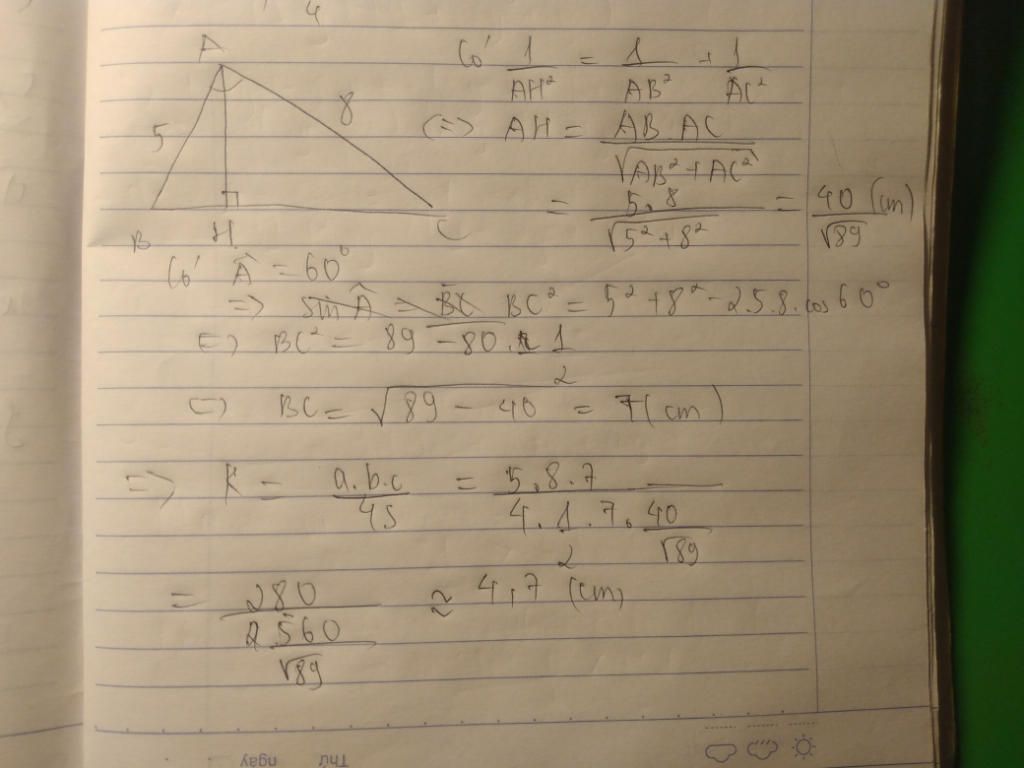 4
A
5
8
B H C
Có 1/AH² = 1/AB² + 1/AC²
<=> AH = AB.AC/√(AB²+AC²)
= 5.8/√(5²+8²) = 40/√89 (cm)
Có Â = 60°
=> sin  = BX BC² = 5² + 8² - 2.5.8.cos60°
<=> BC² = 89 - 80.1/2
<=> BC = √(89 - 40) = 7 (cm)
=> R = a.b.c/4S = 5.8.7/(4.1/2.7.40/√89)
= 280/(560/√89) ≈ 4,7 (cm)
Thứ
ngày